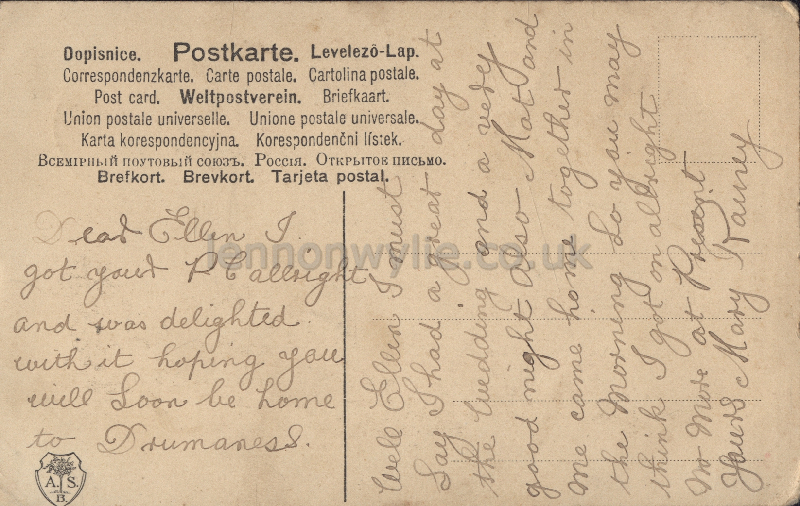 Dopisnice. Postkarte. Levelező-Lap.
Correspondenzkarte. Carte postale. Cartolina postale.
Post card. Weltpostverein. Briefkaart.
Union postale universelle. Unione postale universale.
Karta korespondencyjna. Korespondenční lístek.
Всемірный поутовый союзъ. Россія. Открытое письмо.
Brefkort. Brevkort. Tarjeta postal.
Dear Ellen I.
got your PC allright
and was delighted
with it hoping you
will Soon be home
to Drumaness.
Well Ellen I must
Say I had a great day at
the Wedding and a very
good night Also Mat and
me came home together in
the Morning So you may
think I got on allright
no More at Present
Yours Mary Rainey
lennonwylie.co.uk
A. S.
B.